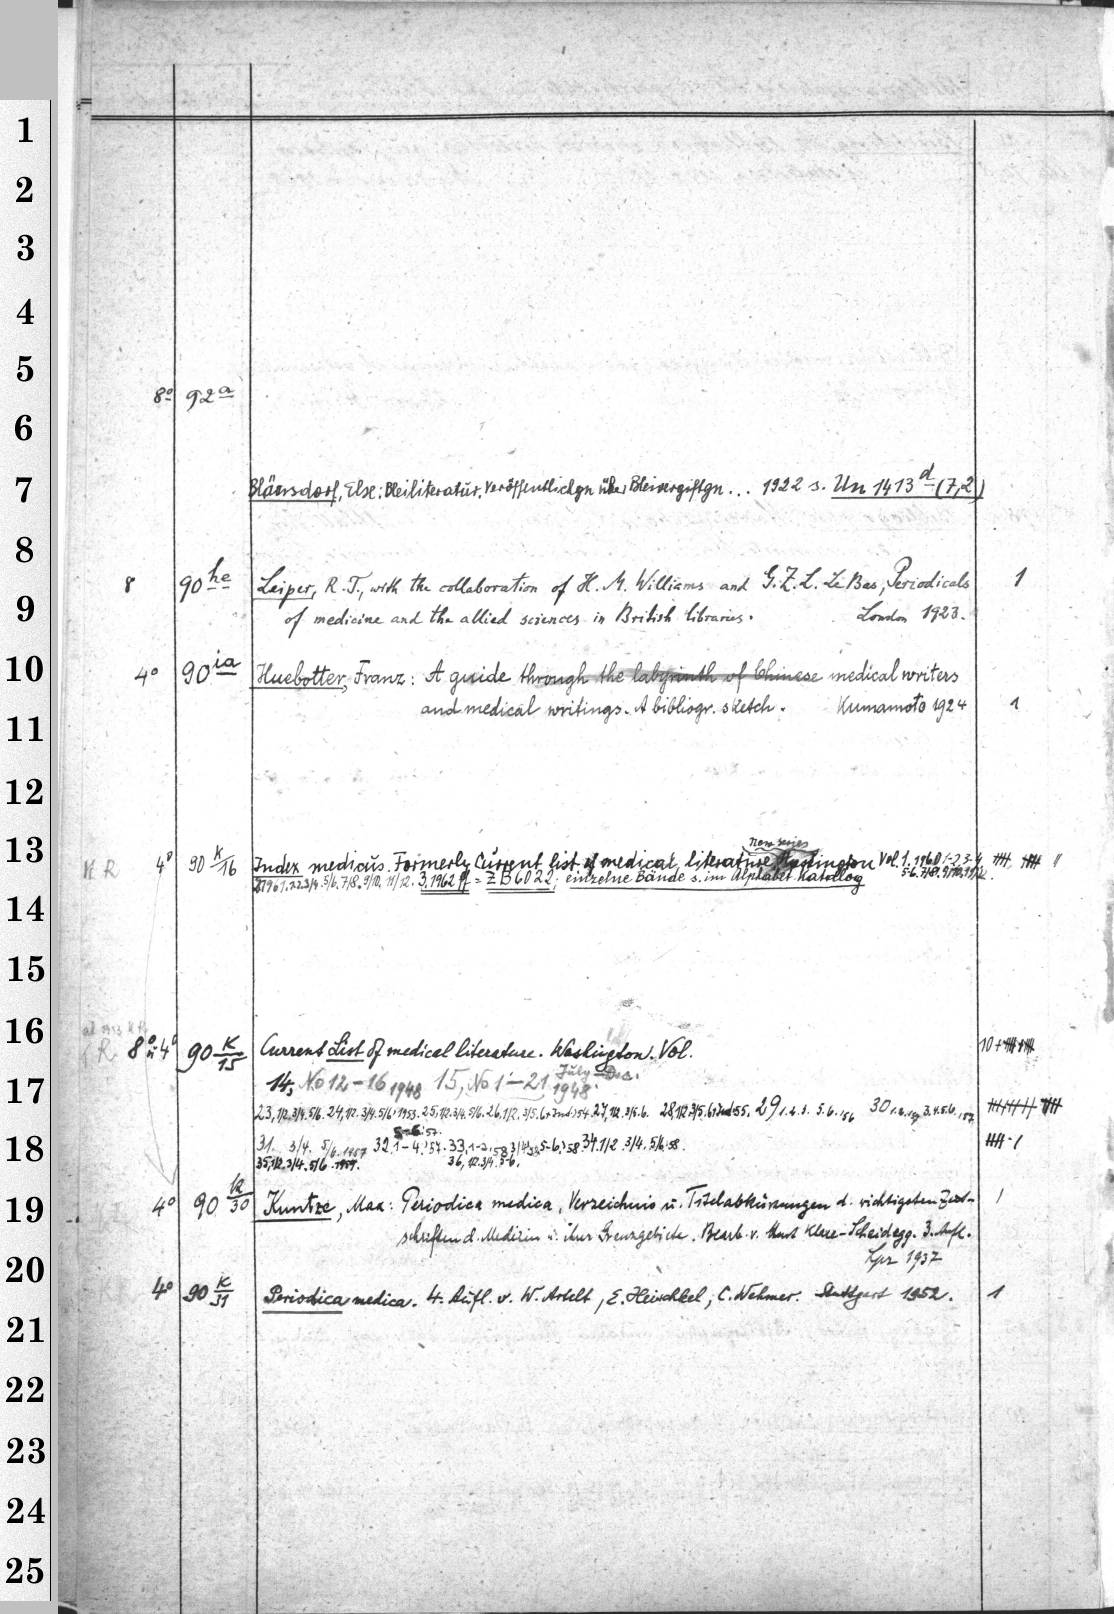 1
2
3
4
5
8º 92ª
6
7 Bläersdorf, Else: Bleiliteratur. Veröffentlichgn über Bleivergiftgn... 1922 s. Un 1413 d (7,2)
8
8 90 he Leiper, R. T., with the collaboration of H. M. Williams and G. Z. L. Le Bas, Periodicals 1
9 of medicine and the allied sciences in British libraries. London 1923.
10 4º 90 ia Huebotter, Franz: A guide through the labyrinth of Chinese medical writers
11 and medical writings. A bibliogr. sketch. Kumamoto 1924 1
12
new series
13 K R 4º 90 K/16 Index medicus. Formerly Current list of medical literature. Washington Vol. 1. 1960 1-2, 3-4,
5-6. 7/8. 9/10. 11/12.
2. 1961. 1/2. 3/4. 5/6. 7/8. 9/10. 11/12. 3, 1962 ff = ZB 6022; einzelne Bände s. im Alphabet. Katalog
14
15
16 8º u 4º 90 K/15 Current List of medical literature. Washington. Vol. 10+
17 14, No 12-16 1948 15, No 1-21 July-Dec. 1948.
23, 1/2. 3/4. 5/6. 24, 1/2. 3/4. 5/6. 1953. 25, 1/2. 3/4. 5/6. 26, 1/2. 3/5. 6 54. 27, 1/2. 3/5. 6. 28, 1/2. 3/5. 6 55. 29 1. 2. 3. 5. 6. 56 30 3. 4. 5. 6. 57.
5-6. 57.
18 31. 3/4. 5/6. 1957 32. 1-4. 57. 33, 1-2. 58 5-6. 58 34. 1/2. 3/4. 5/6. 58.
35, 1/2. 3/4. 5/6. 1959. 36, 1/2. 3/4. 5-6.
19 4º 90 k/30 Kuntze, Max: Periodica medica, Verzeichnis u. Titelabkürzungen d. wichtigsten Zeit- 1
schriften d. Medizin u. ihrer Grenzgebiete. Bearb. v. Kurt Klare-Scheidegg. 3. Aufl.
20 Lpz 1937
4º 90 K/31 Periodica medica. 4. Aufl. v. W. Artelt, E. Heischkel, C. Wehmer. Stuttgart 1952. 1
21
22
23
24
25